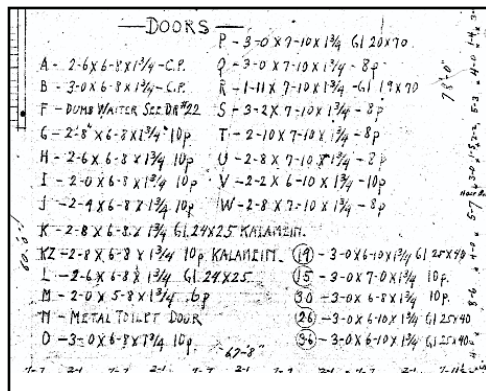 DOORS
A - 2-6 X 6-8 X 1¾ - C.P.
B - 3-0 X 6-8 X 1¾ - C.P.
F - DUMB WAITER SEE DR #22
G - 2-8" X 6-8 X 1¾" 10p
H - 2-6 X 6-8 X 1¾ 10p
I - 2-0 X 6-8 X 1¾ 10p
J - 2-4 X 6-8 X 1¾ 10p
K - 2-8 X 6-8 X 1¾ Gl. 24X25 KALAMEIN.
KZ - 2-8 X 6-8 X 1¾ 10p. KALAMEIN.
L - 2-6 X 6-8 X 1¾ Gl. 24X25
M - 2-0 X 5-8 X 1¾ 6p
N - METAL TOILET DOOR
O - 3-0 X 6-8 X 1¾ 10p
P - 3-0 X 7-10 X 1¾ Gl 20X70
Q - 3-0 X 7-10 X 1¾ - 8p
R - 1-11 X 7-10 X 1¾ - Gl 19X70
S - 3-2 X 7-10 X 1¾ - 8p
T - 2-10 X 7-10 X 1¾ - 8p
U - 2-8 X 7-10 X 1¾ - 8p
V - 2-2 X 6-10 X 1¾ - 10p
W - 2-8 X 7-10 X 1¾ - 8p
- 3-0 X 6-10 X 1¾ Gl 25X40
15 - 3-0 X 7-0 X 1¾ 10p.
30 - 3-0 X 6-8 X 1¾ 10p.
26 - 3-0 X 6-10 X 1¾ Gl 25X40
36 - 3-0 X 6-10 X 1¾ Gl 25X40
67-8"